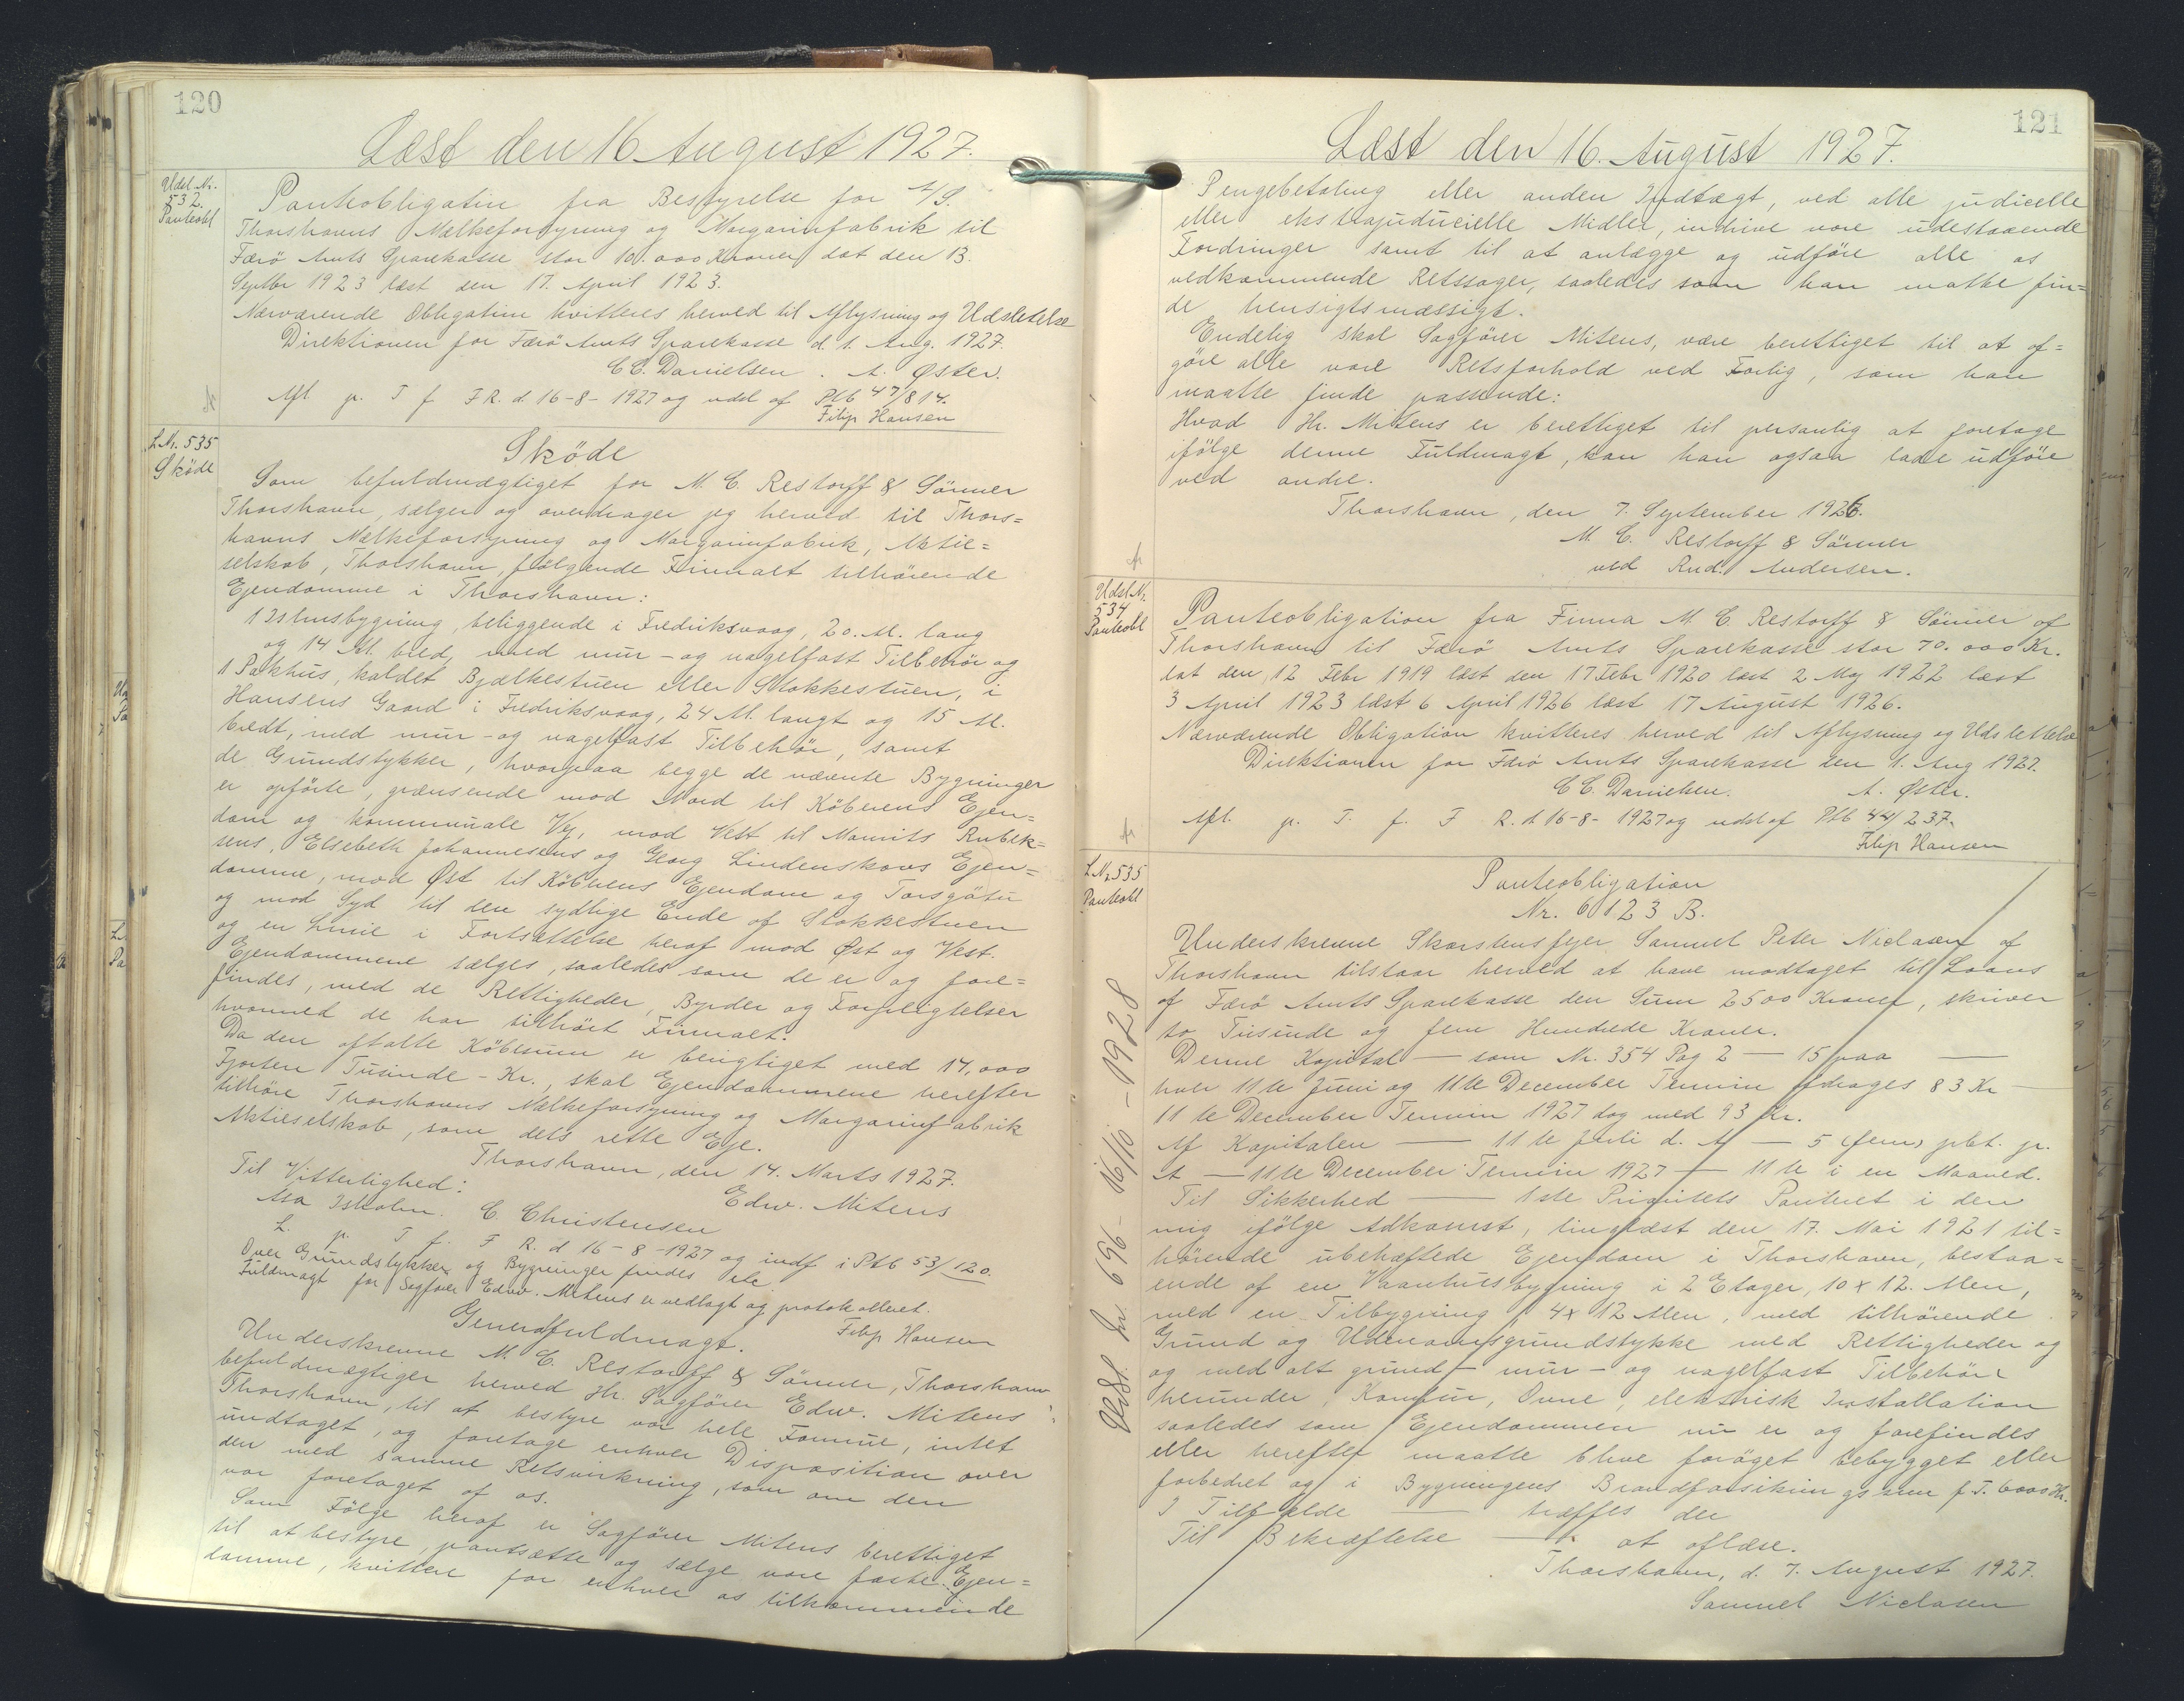 120
Læst den 16 August 1927.
Udsl. Nr.
532.
Panteobl
Panteobligation fra Bestyrelse for A/S.
Thorshavns Mælkeforsyning og Margarinfabrik til
Færö Amts Sparekasse stor 10.000 Kroner dat den 13.
Septbr 1923 læst den 17. April 1923.
Nærværende Obligation kvitteres herved til Aflysning og Udslettelse
Direktionen for Færö Amts Sparekasse d. 1. Aug. 1927.
C.C. Danielsen. A. Øster.
Afl p. T f F R. d. 16-8-1927 og udsl af Ptb 47/814.
Filip Hansen
L. Nr. 535
Sköde
Sköde
Som befuldmægtiget for M. C. Restorff & Sönner
Thorshavn, sælger og overdrager jeg herved til Thors=
havns Mælkeforsyning og Margarinfabrik, Aktie=
selskab, Thorshavn, fölgende Firmaet tilhörende
Ejendomme i Thorshavn:
1 Ishusbygning, beliggende i Fredriksvaag, 20. Al. lang
og 14 Al. bred, med mur- og nagelfast Tilbehör og
1 Pakhus, kaldet Bjælkestuen eller Stokkestuen, i
Hansens Gaard i Fredriksvaag, 24 Al. langt og 15 Al.
bredt, med mur- og nagelfast Tilbehör, samt
de Grundstykker, hvorpaa begge de nævnte Bygninger
er opförte, grænsende mod Nord til Köberens Ejen=
dom og kommunale Vej, mod Vest til Mourits Rubek=
sens, Elsebeth Johannesens og Georg Lindenskovs Ejen=
domme, mod Øst til Köberens Ejendom og Torsgötu
og mod Syd til den sydlige Ende af Stokkestuen
og en Linie i Fortsættelse heraf mod Øst og Vest.
Ejendommene sælges, saaledes som de er og fore=
findes, med de Rettigheder, Byrder og Forpligtelser
hvormed de har tilhört Firmaet.
Da den aftalte Köbesum er berigtiget med 14,000
Fjorten Tusinde - Kr., skal Ejendommene herefter
tilhöre Thorshavns Mælkeforsyning og Margarinfabrik
Aktieselskab, som dets rette Eje.
Thorshavn, den 14. Marts 1927.
Til Vitterlighed:
Edw. Mitens
Asa Isholm. C. Christensen
L. p. T f. F R. d 16-8-1927 og indf i Ptb 53/120.
Over Grundstykker og Bygninger findes
Fuldmagt for Sagförer Edw. Mitens er vedlagt og protokolleret.
Filip Hansen
Generalfuldmagt.
Underskrevne M. C. Restorff & Sönner, Thorshavn
befuldmægtiger herved Hr. Sagförer Edw. Mitens
Thorshavn, til at bestyre vor hele Formue, intet
undtaget, og foretage enhver Disposition over
den med samme Retsvirkning, som om den
var foretaget af os.
Som Fölge heraf er Sagförer Mitens berettiget
til at bestyre, pantsætte og sælge vore faste Ejen=
domme, kvittere for enhver os tilkommende
121
Læst den 16. August 1927.
Pengebetaling eller anden Indtægt, ved alle judicelle
eller ekstrajuducielle Midler, indrive vore udestaaende
Fordringer samt til at anlægge og udföre alle os
vedkommende Retssager, saaledes som han maatte fin=
de hensigtsmæssigt.
Endelig skal Sagförer Mitens, være berettiget til at af=
göre alle vore Retsforhold ved Forlig, som han
maatte finde passende:
Hvad Hr. Mitens er berettiget til personlig at foretage
ifölge denne Fuldmagt, kan han ogsaa lade udföre
ved andre.
Thorshavn, den 7. September 1926.
M. C. Restorff & Sönner
ved Rud. Andersen.
Udsl. Nr.
534
Panteobl
Panteobligation fra Firma M. C. Restorff & Sönner af
Thorshavn til Færö Amts Sparekasse stor 70.000 Kr.
dat den 12 Febr 1919 læst den 17 Febr 1920 læst 2 Maj 1922 læst
3 April 1923 læst 6 April 1926 læst 17 August 1926.
Nærværende Obligation kvitteres herved til Aflysning og Udslettelse
Direktionen for Færö Amts Sparekasse den 1. Aug 1927.
C C. Danielsen. A. Øster.
Afl. p. T. f. F R. d. 16-8-1927 og udsl af Ptb 44/237.
Filip Hansen
L. Nr 535
Panteobl
Panteobligation
Nr. 6123 B.
Underskrevne Skorstensfejer Samuel Peter Niclasen af
Thorshavn tilstaar herved at have modtaget til Laans
af Færö Amts Sparekasse den Sum 2500 Kroner, skriver
to Tusinde og fem Hundrede Kroner.
Denne Kapital — som Nr. 354 Pag 2 — 15 paa —
hver 11te Juni og 11te December Termin afdrages 83 Kr
11te December Termin 1927 dog med 93 Kr.
Af Kapitalen — 11te Juli d. A — 5 (fem) pCt. p.
A — 11te December Termin 1927 — 11te i en Maaned.
Til Sikkerhed — 1ste Prioritets Panteret i den
mig ifölge Adkomst, tinglæst den 17. Mai 1921 til=
hörende ubehæftede Ejendom i Thorshavn, bestaa=
ende af en Vaanhusbygning i 2 Etager, 10 x 12. Alen,
med en Tilbygning, 4 x 12 Alen, med tilhörende
Grund og Udenomsgrundstykke med Rettigheder og
og med alt grund- mur- og nagelfast Tilbehör
herunder, Komfur, Ovne, elektrisk Installation
saaledes som Ejendommen nu er og forefindes
eller herefter maatte blive foröget bebygget eller
forbedret og i Bygningens Brandforsikringssum f. T. 6000 Kr.
I Tilfælde — træffes der
Til Bekræftelse — at aflæse.
Thorshavn, d. 7. August 1927.
Samuel Niclasen
Udsl. Nr 696 - 16/10 - 1928